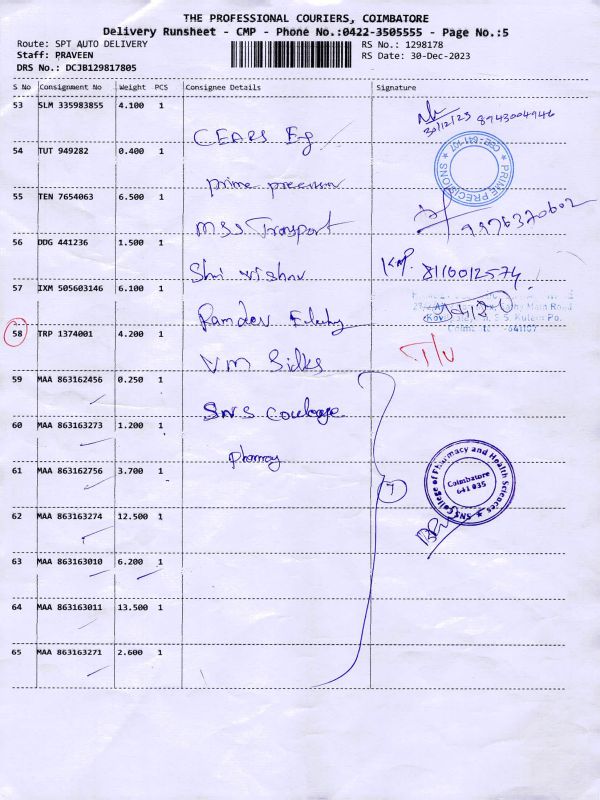 THE PROFESSIONAL COURIERS, COIMBATORE
Delivery Runsheet - CMP - Phone No.:0422-3505555 - Page No.:5
Route: SPT AUTO DELIVERY
Staff: PRAVEEN
DRS No.: DCJB129817805
RS No.: 1298178
RS Date: 30-Dec-2023
S No Consignment No Weight PCS Consignee Details Signature
53 SLM 335983855 4.100 1
CEARS Eg
30/12/23 8943004946
54 TUT 949282 0.400 1
prime precision
PRIME PRECISIONS * CBE-641 107 *
55 TEN 7654063 6.500 1
MSS Transport
9976370602
56 DDG 441236 1.500 1
Shri vishnu
8110012574
57 IXM 505603146 6.100 1
Ramdev
Main Road
S.S. Kulam Po.
-641107
58 TRP 1374001 4.200 1
V.M Silks
59 MAA 863162456 0.250 1
SNS Coulage
60 MAA 863163273 1.200 1
Pharmay
61 MAA 863162756 3.700 1
7
SNS College of Pharmacy and Health Sciences *
Coimbatore
641 035
62 MAA 863163274 12.500 1
63 MAA 863163010 6.200 1
64 MAA 863163011 13.500 1
65 MAA 863163271 2.600 1